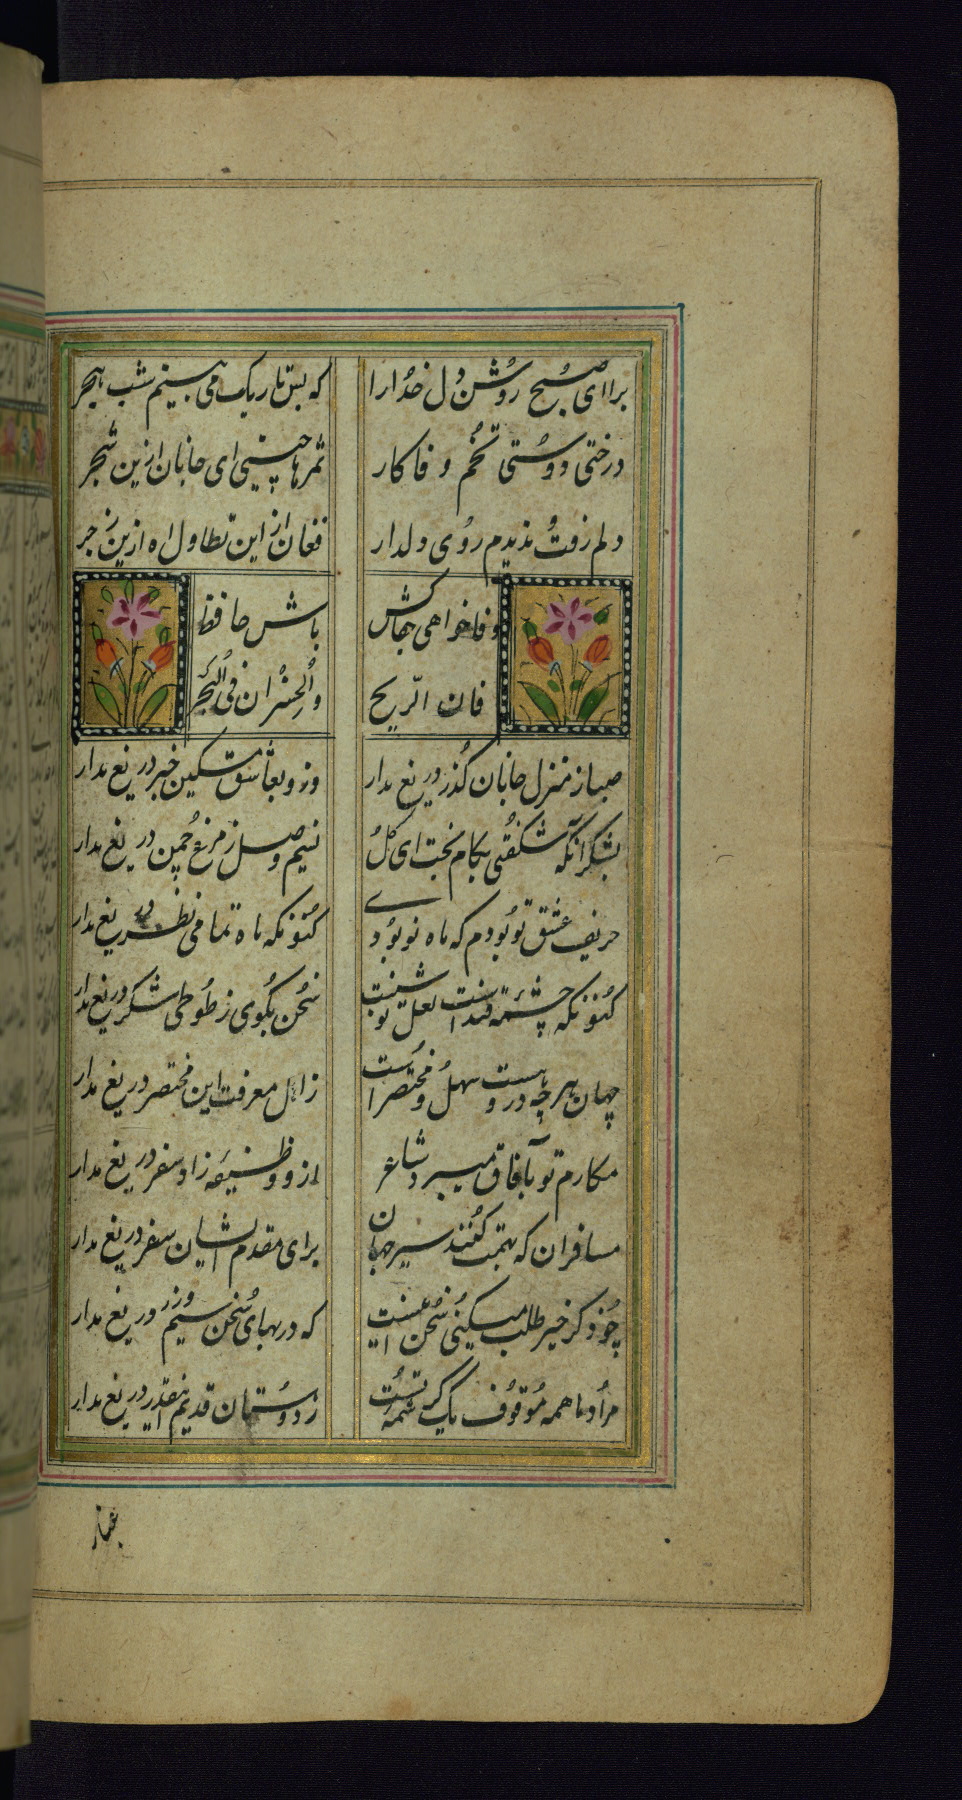 برا ای صبح روشن دل خدا را که بس تاریک می بینم شب هجر
درختی دوستی تخم وفا کار ثمرها چینی ای جانان ازین شجر
دلم رفت ندیدم روی دلدار فغان از این تطاول اه ازین زجر
وفا خواهی جفاکش باش حافظ
فان الریح والخسران فی التجر
صبا ز منزل جانان گذر دریغ مدار وزو بعاشق مسکین خبر دریغ مدار
بشکر آنکه شکفتی بکام بخت ای گل نسیم وصل ز مرغ چمن دریغ مدار
حریف عشق تو بودم که ماه نو بودی کنونکه ماه تمامی نظر دریغ مدار
کنونکه چشمه قند است لعل نوشینت سخن بگوی ز طوطی شکر دریغ مدار
جهان هر چه درو هست سهل و مختصر است ز اهل معرفت این مختصر دریغ مدار
مکارم تو بآفاق میبرد شاعر ازو وظیفه زاد و سفر دریغ مدار
مسافران که بهمت کنند سیر جهان برای مقدم ایشان سفر دریغ مدار
چو ذکر خیر طلب میکنی سخن اینست که در بهای سخن سیم و زر دریغ مدار
مراد ما همه موقوف یک کرشمه تست ز دوستان قدیم اینقدر دریغ مدار
غبار